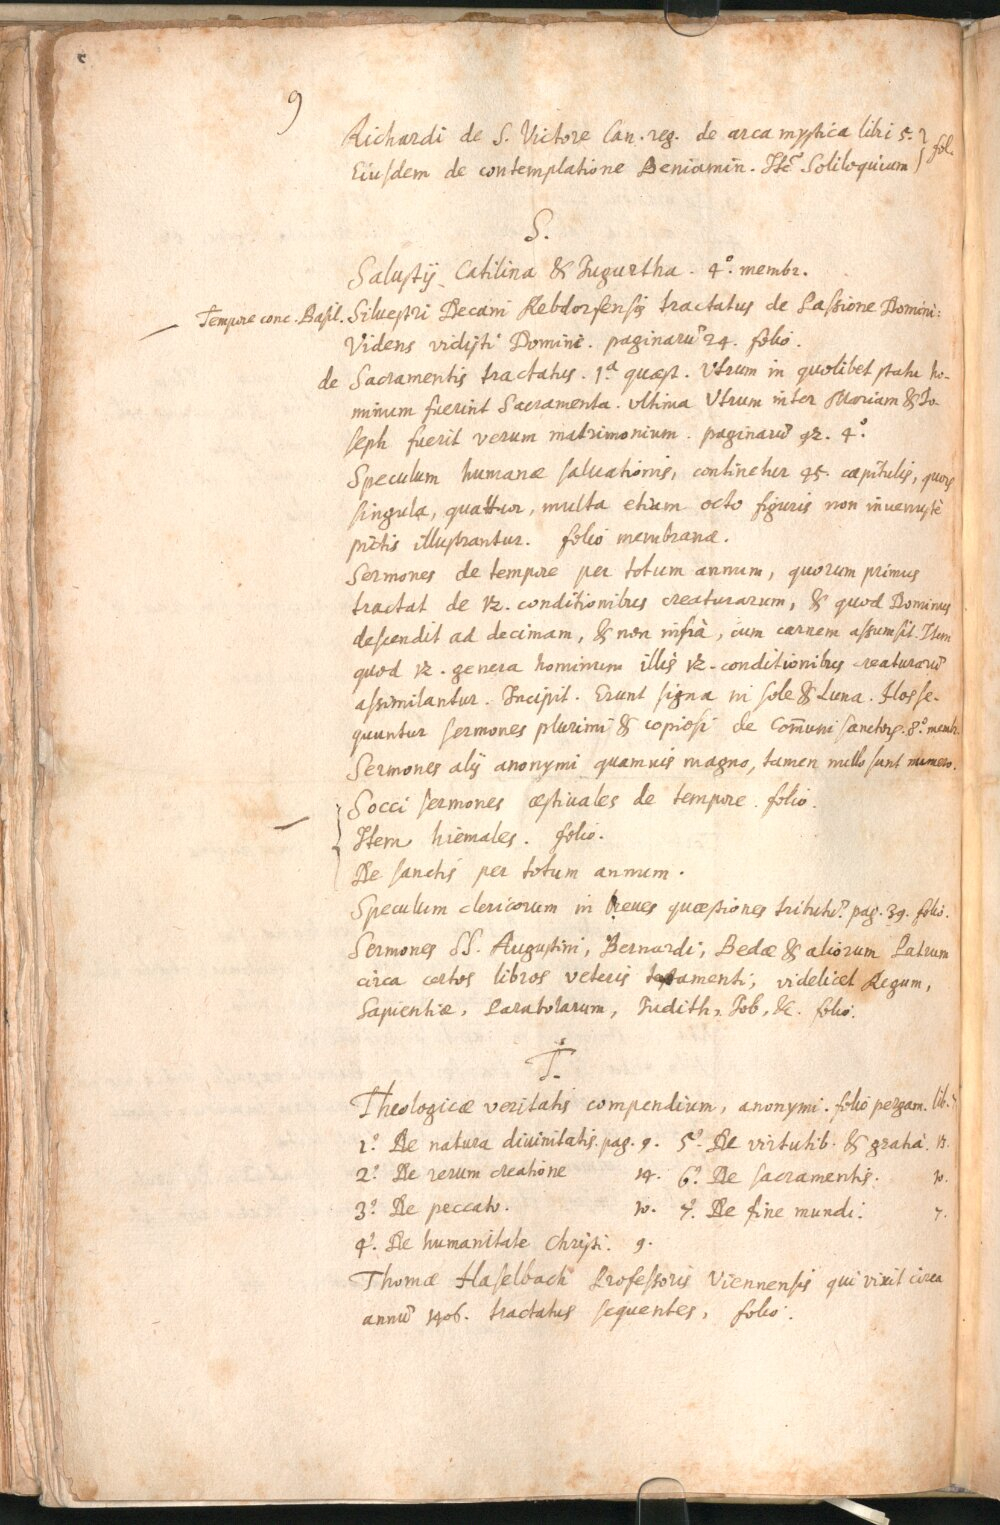 9
Richardi de S. Victore Can. reg. de arca mystica libri 5. } fol.
Eiusdem de contemplatione Beniamin. Itē Soliloquium
S.
Salustij Catilina & Jugurtha. 4.º membr.
Tempore conc. Basil. Siluestri Decani Rebdorfensis tractatus de Passione Domini:
Videns vidisti Domini. paginarū 24. folio.
de Sacramentis tractatus. 1.ª quæst. Utrum in quolibet statu ho-
minum fuerint Sacramenta. ultima Utrum inter Mariam & Jo-
seph fuerit verum matrimonium. paginarū 92. 4.º
Speculum humanæ saluationis, continetur 45. capitulis, quorum
singula, quattuor, multa etiam octo figuris non inuenustè
pictis illustrantur. folio membranæ.
Sermones de tempore per totum annum, quorum primus
tractat de 12. conditionibus creaturarum, & quod Dominus
descendit ad decimam, & non infrà, cum carnem assumsit. Item
quod 12. genera hominum illis 12. conditionibus creaturarū
assimilantur. Incipit. Erunt signa in sole & Luna. Hos se-
quuntur sermones plurimi & copiosi de Com̄uni sanctorū. 8.º membr.
Sermones alij anonymi quamuis magno, tamen nullo sunt numero.
Socci sermones æstiuales de tempore. folio.
Item hiemales. folio.
De sanctis per totum annum.
Speculum clericorum in breues quæstiones tributū. pag. 39. folio.
Sermones SS. Augustini, Bernardi, Bedæ & aliorum Patrum
circa certos libros veteris testamenti, videlicet Regum,
Sapientiæ, Parabolarum, Judith, Job, &c. folio.
T.
Theologicæ veritatis compendium, anonymi. folio pergam. lib. 7
1.º De natura diuinitatis. pag. 9. 5.º De virtutib. & gratia. 12.
2.º De rerum creatione 14. 6.º De sacramentis. 10.
3.º De peccato. 10. 7.º De fine mundi. 7.
4.º De humanitate Christi. 9.
Thomæ Haselbach Professoris Viennensis qui vixit circa
annū 1406. tractatus sequentes, folio.